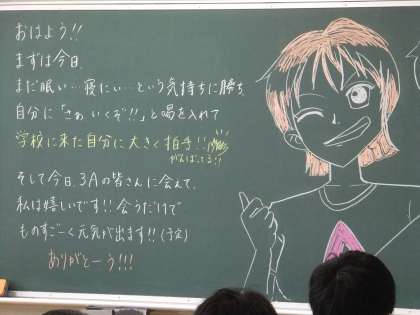 おはよう!!
まずは今日、
まだ眠い…寝にい…という気持ちに勝ち
自分に「さぁ いくぞ!!」と喝を入れて
学校に来た自分に大きく拍手!!
がんばってる!!
そして今日、3Aの皆さんに会えて、
私は嬉しいです!!会うだけで
ものすごーく元気が出ます!!(予定)
ありがとーう!!!